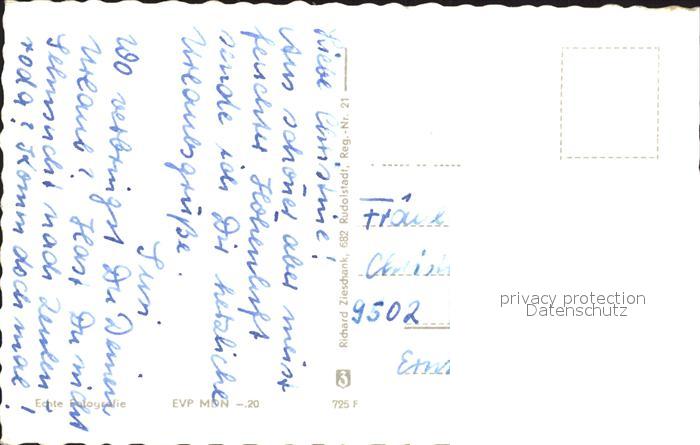 Liebe Christine!
Aus schöner aber meist
feuchter Höhenluft
sende ich Dir herzliche
Urlaubsgrüße.
Wo verbringst Du Deinen
Urlaub? Hast Du nicht
Sehnsucht nach Zeulen-
roda? Komm doch mal!
Richard Zieschank, 682 Rudolstadt, Reg.-Nr. 21
Echte Fotografie
EVP MDN -.20
725 F
9502
privacy protection
Datenschutz